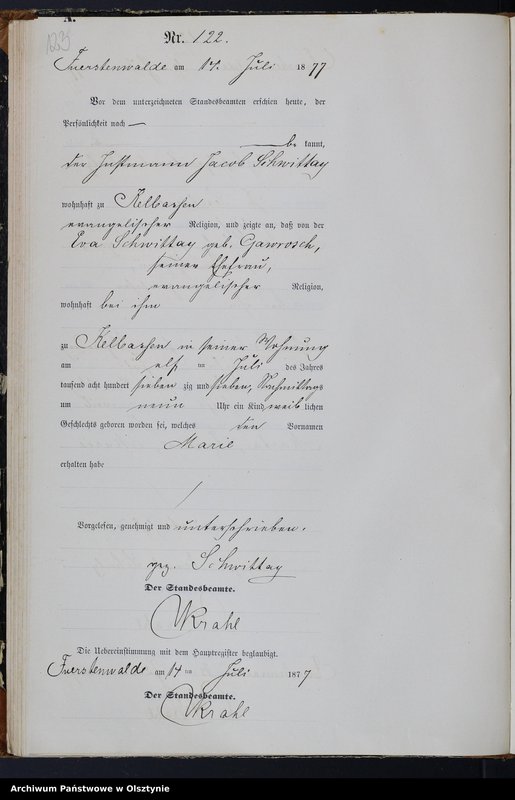 A.
123
Nr. 122.
Fuerstenwalde am 14. Juli 1877
Vor dem unterzeichneten Standesbeamten erschien heute, der
Persönlichkeit nach —
be kannt,
der Instmann Jacob Schwittay
wohnhaft zu Kelbassen
evangelischer Religion, und zeigte an, daß von der
Eva Schwittay geb. Gawrosch,
seiner Ehefrau,
evangelischer Religion,
wohnhaft bei ihm
zu Kelbassen in seiner Wohnung
am elf ten Juli des Jahres
tausend acht hundert sieben zig und sieben, Nachmittags
um neun Uhr ein Kind weib lichen
Geschlechts geboren worden sei, welches den Vornamen
Marie
erhalten habe
Vorgelesen, genehmigt und unterschrieben.
gez. Schwittay
Der Standesbeamte.
Krahl
Die Uebereinstimmung mit dem Hauptregister beglaubigt.
Fuerstenwalde am 14 ten Juli 1877
Der Standesbeamte.
Krahl
Archiwum Państwowe w Olsztynie